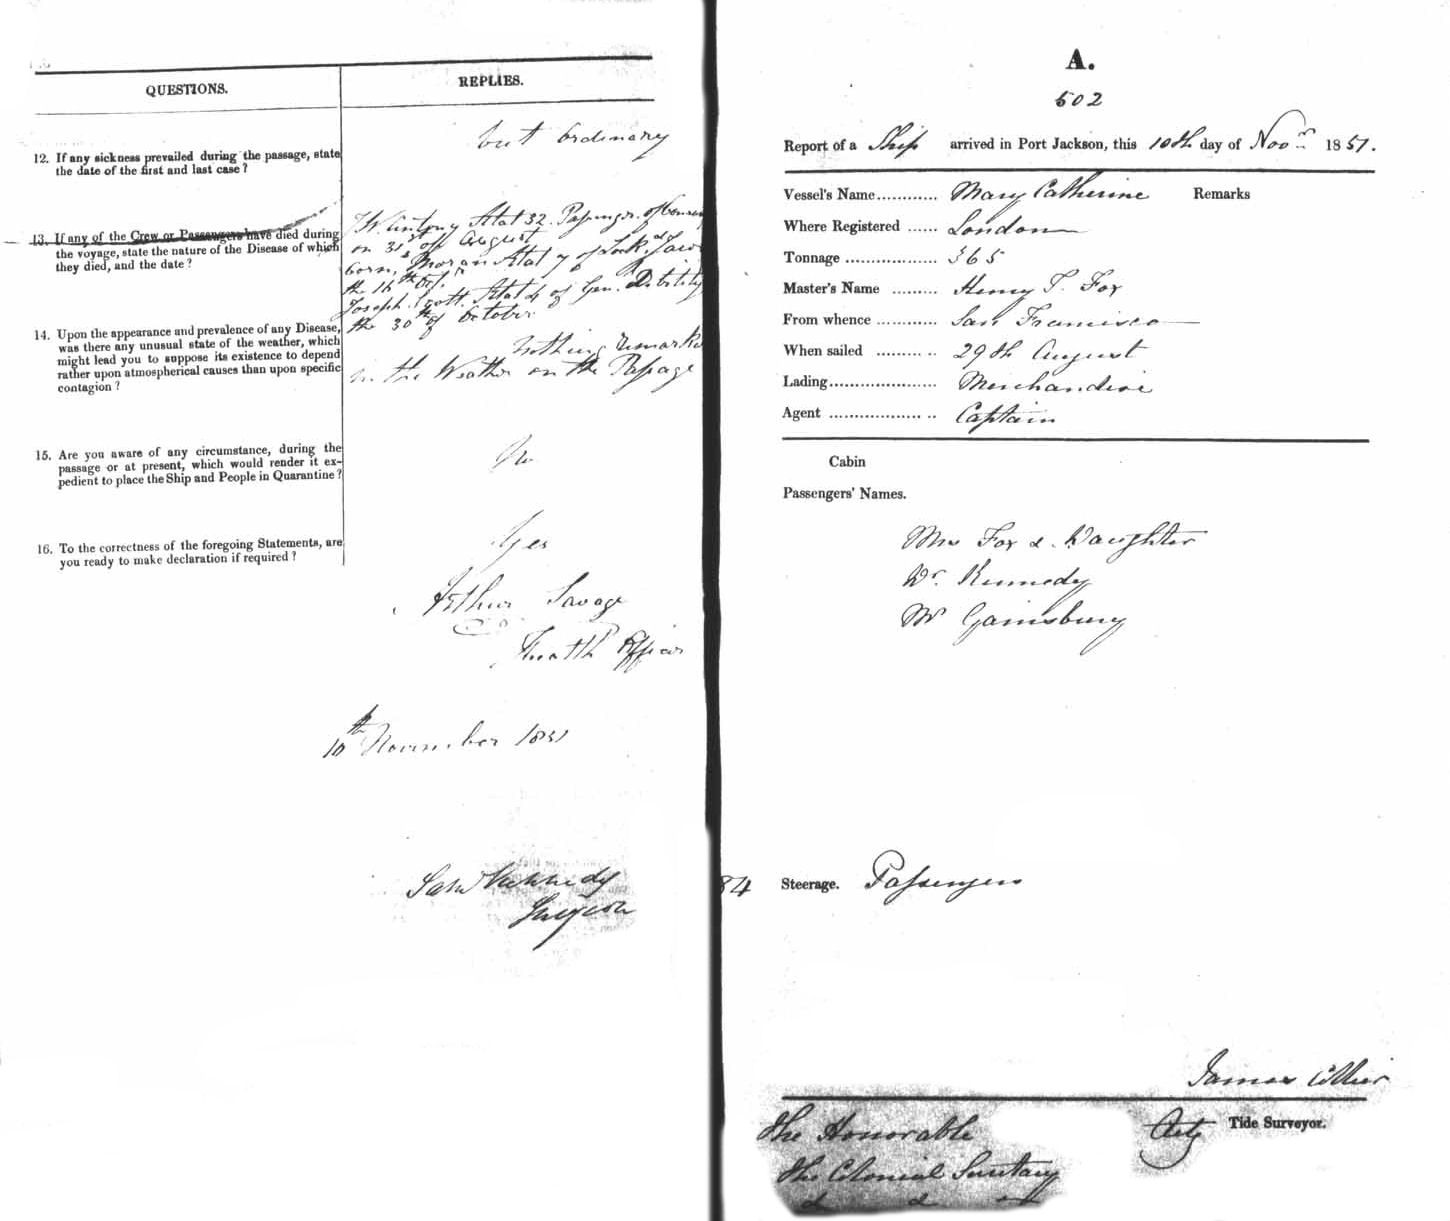 QUESTIONS. REPLIES.
12. If any sickness prevailed during the passage, state
the date of the first and last case ?
but Ordinary
13. If any of the Crew or Passengers have died during
the voyage, state the nature of the Disease of which
they died, and the date ?
Antony Ætat 32. Passenger. of
on 31st of August
born, Moran Ætat 7 of Lock'd Jaw
the 16th Oct.
Joseph Scott. Ætat 4 of Gen. Debility
the 30th of October
14. Upon the appearance and prevalence of any Disease,
was there any unusual state of the weather, which
might lead you to suppose its existence to depend
rather upon atmospherical causes than upon specific
contagion ?
Nothing remark
in the Weather on the Passage
15. Are you aware of any circumstance, during the
passage or at present, which would render it ex-
pedient to place the Ship and People in Quarantine ?
No
16. To the correctness of the foregoing Statements, are
you ready to make declaration if required ?
Yes
Arthur Savage
Health Officer
10th November 1851
Kennedy
Surgeon
A.
502
Report of a Ship arrived in Port Jackson, this 10th day of Novr 1851.
Vessel's Name............ Mary Catherine Remarks
Where Registered ...... London
Tonnage .................. 365
Master's Name ......... Henry T. Fox
From whence ............ San Francisco
When sailed ........... 29th August
Lading..................... Merchandise
Agent .................... Captain
Cabin
Passengers' Names.
Mrs Fox & Daughter
Dr. Kennedy
Mr Gainsbury
84 Steerage. Passengers
James Collier
Actg Tide Surveyor.
The Honorable
The Colonial Secretary